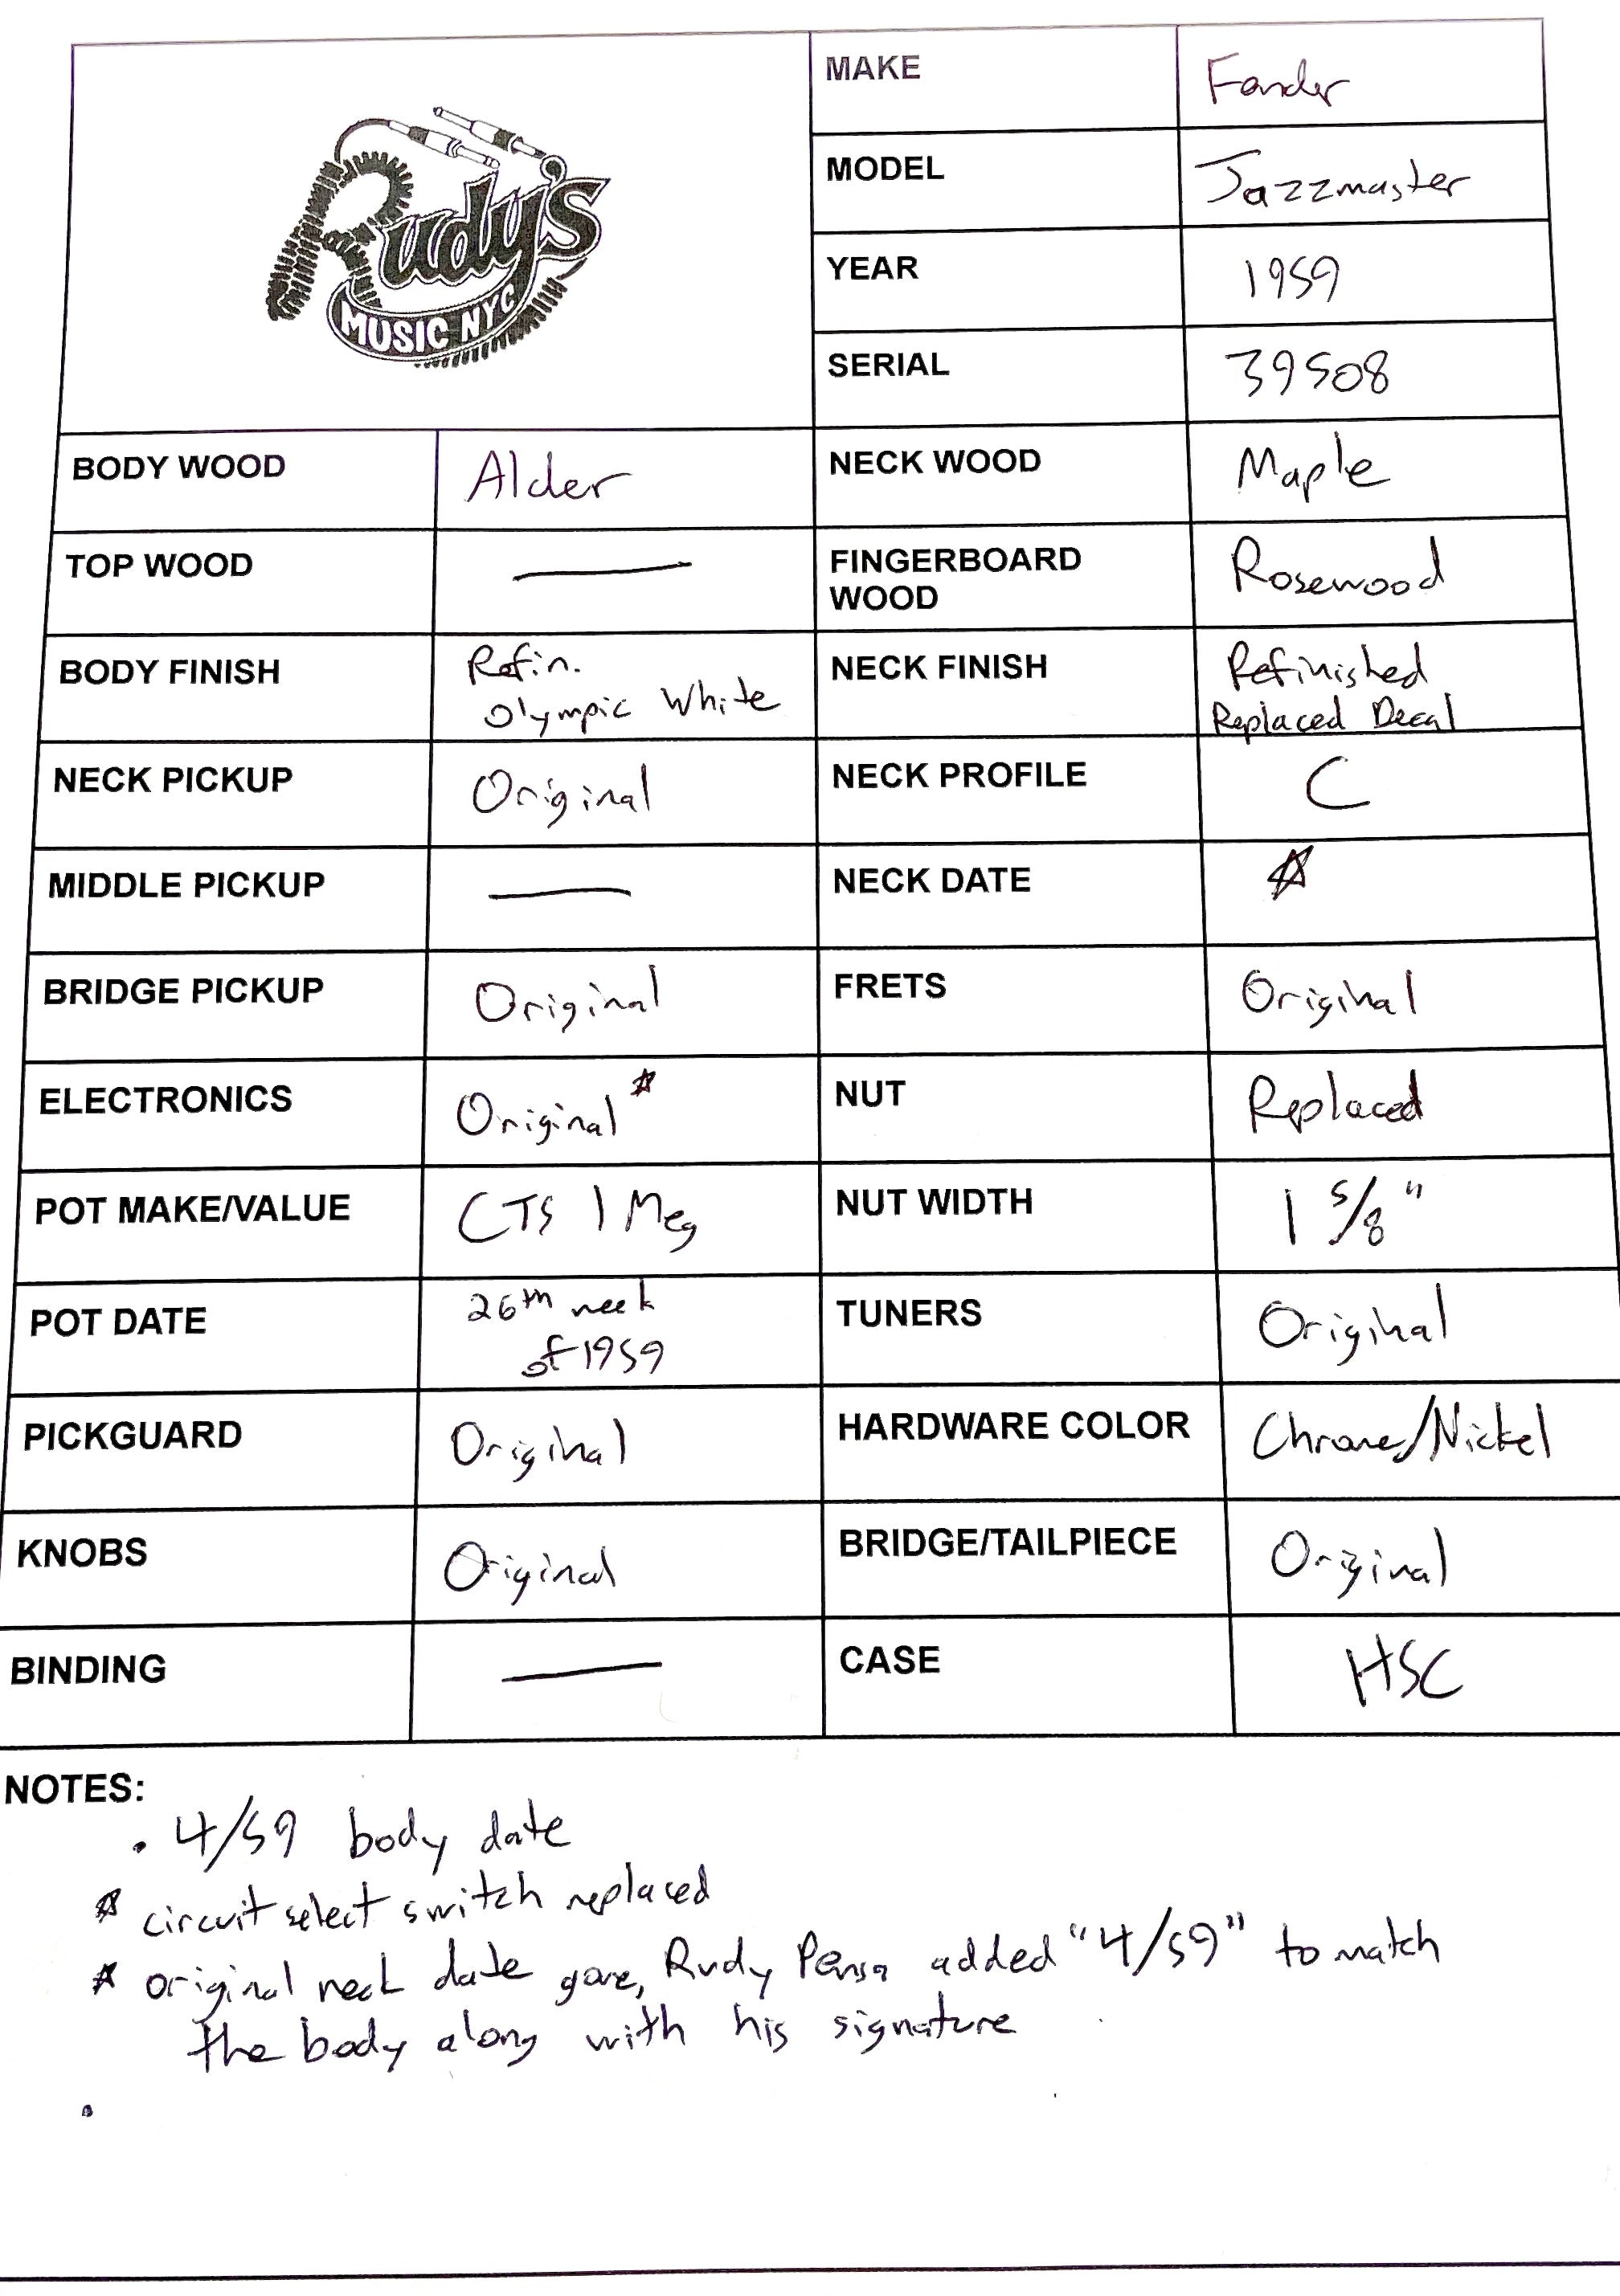 Rudy's
MUSIC NYC
MAKE Fender
MODEL Jazzmaster
YEAR 1959
SERIAL 39508
BODY WOOD Alder NECK WOOD Maple
TOP WOOD — FINGERBOARD
WOOD Rosewood
BODY FINISH Refin.
Olympic White NECK FINISH Refinished
Replaced Decal
NECK PICKUP Original NECK PROFILE C
MIDDLE PICKUP — NECK DATE ☆
BRIDGE PICKUP Original FRETS Original
ELECTRONICS Original ☆ NUT Replaced
POT MAKE/VALUE CTS 1 Meg NUT WIDTH 1 5/8"
POT DATE 26th week
of 1959 TUNERS Original
PICKGUARD Original HARDWARE COLOR Chrome/Nickel
KNOBS Original BRIDGE/TAILPIECE Original
BINDING — CASE HSC
NOTES:
· 4/59 body date
☆ circuit select switch replaced
☆ original neck date gone, Rudy Pensa added "4/59" to match
the body along with his signature